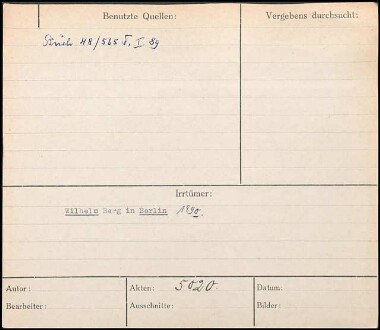 Benutzte Quellen:
Vergebens durchsucht:
48/565 F, I. 89
Irrtümer:
Wilhelm Berg in Berlin 1890.
Autor:
Akten: 5020.
Datum:
Bearbeiter:
Ausschnitte:
Bilder: